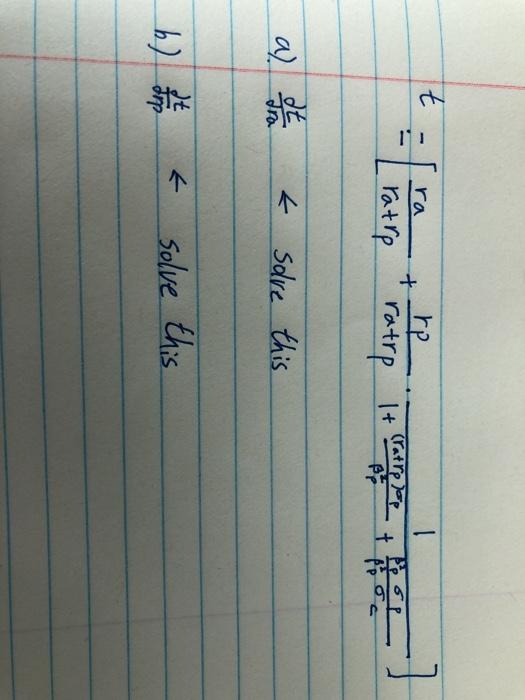 t = [ ra / (ra+rp) + rp / (ra+rp) · 1 / (1 + (ra+rp)σp / β²p + β²p σp / β²p σc) ]
a) dt/dra ← solve this
b) dt/drp ← solve this